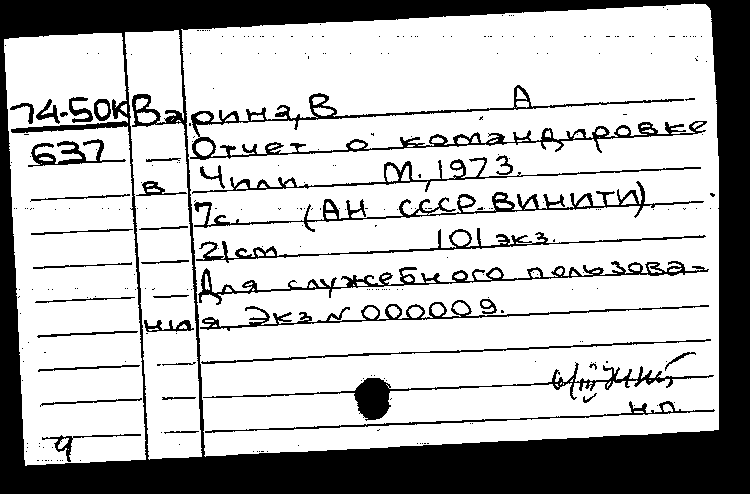 74-50К Варина, В А
637 Отчет о командировке
в Чили. М., 1973.
7с. (АН СССР. ВИНИТИ).
21см. 101 экз.
Для служебного пользова-
ния. Экз N 000009.
н.п.
ч